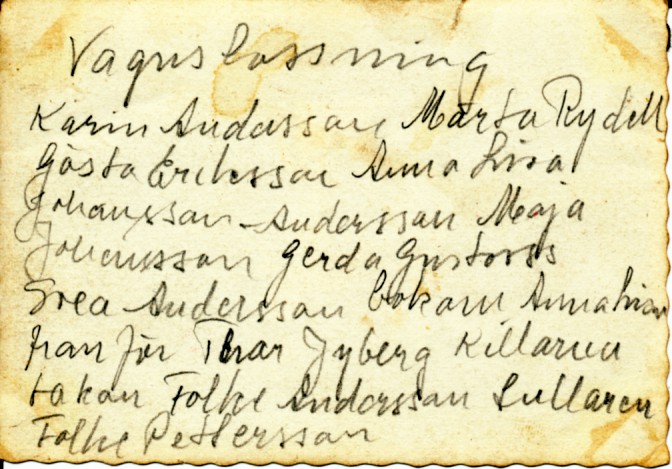 Vagnslossning
Karin Andersson Märta Rydell
Gösta Eriksson Anna Lisa
Johansson Andersson Maja
Johansson Gerda Gustavss
Svea Andersson Anna Lisa
från Jyberg Killarna
Folke Andersson
Folke Pettersson